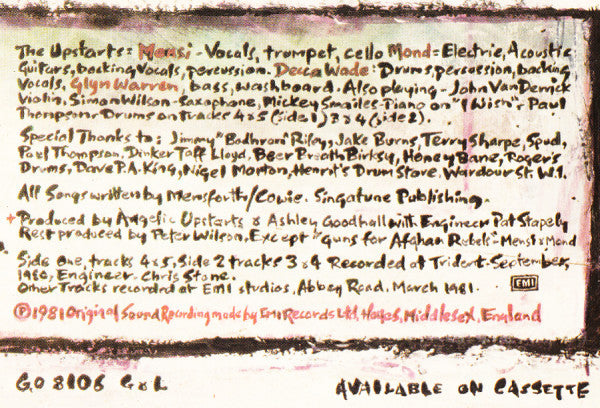 The Upstarts: Mensi - Vocals, trumpet, cello Mond = Electric, Acoustic
Guitars, backing Vocals, percussion. Decca Wade: Drums, percussion, backing
Vocals, Glyn Warren, bass, washboard. Also playing - John Van Derrick
Violin, Simon Wilson - Saxophone, Mickey Smailes - Piano on "I Wish". - Paul
Thompson - Drums on tracks 4 & 5 (side 1) 3 & 4 (side 2).
Special Thanks to: Jimmy "Bodhroni" Riley, Jake Burns, Terry Sharpe, Spud,
Paul Thompson. Dinker Taff Lloyd, Beer Breath Birksy, Honey Bane, Roger's
Drums, Dave P.A. King, Nigel Morton, Henrit's Drum Store, Wardour St. W.1.
All Songs written by Mensforth/Cowie. Singatune Publishing.
+ Produced by Angelic Upstarts & Ashley Goodhall with Engineer Pat Stapely
Rest produced by Peter Wilson, Except "guns for Afghan Rebels" - Mensi & Mond
Side One, tracks 4 & 5, Side 2 tracks 3 & 4 Recorded at Trident - September,
1980, Engineer - Chris Stone.
Other Tracks recorded at EMI studios, Abbey Road, March 1981.
EMI
℗ 1981 Original Sound Recording made by EMI Records Ltd, Hayes, Middlesex, England
GO 8106 G&L
AVAILABLE ON CASSETTE